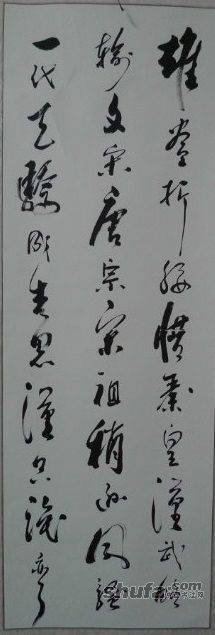 雄竞折腰惜秦皇漢武略
输文采唐宗宋祖稍逊风骚
一代天骄成吉思漢只识弯